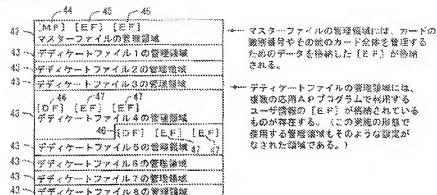 44 45 45
42 [MF] [EF] [EF]
マスターファイルの管理領域
43 デディケートファイル1の管理領域
43 デディケートファイル2の管理領域
43 デディケートファイル3の管理領域
46 47 47
[DF] [EF] [EF]
43 デディケートファイル4の管理領域
46 [DF] [EF] [EF]
43 デディケートファイル5の管理領域 47 47
43 デディケートファイル6の管理領域
43 デディケートファイル7の管理領域
43 デディケートファイル8の管理領域
マスターファイルの管理領域には、カードの
識別番号やその他のカード全体を管理する
ためのデータを格納した[EF]が格納
される。
デディケートファイルの管理領域には、
複数の応用APプログラムで利用する
ユーザ情報の[EF]が格納されている
ものが存在する。(この実施の形態で
使用する管理領域もそのような設定が
なされた領域である。)